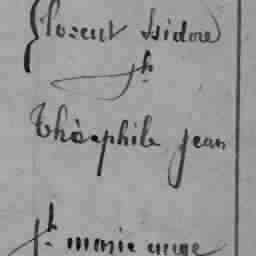 Florent Isidore
fh
Théophile Jean
ft marie ange